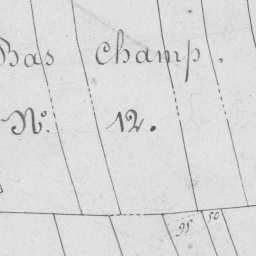 Bas champ.
No. 12.
95 50